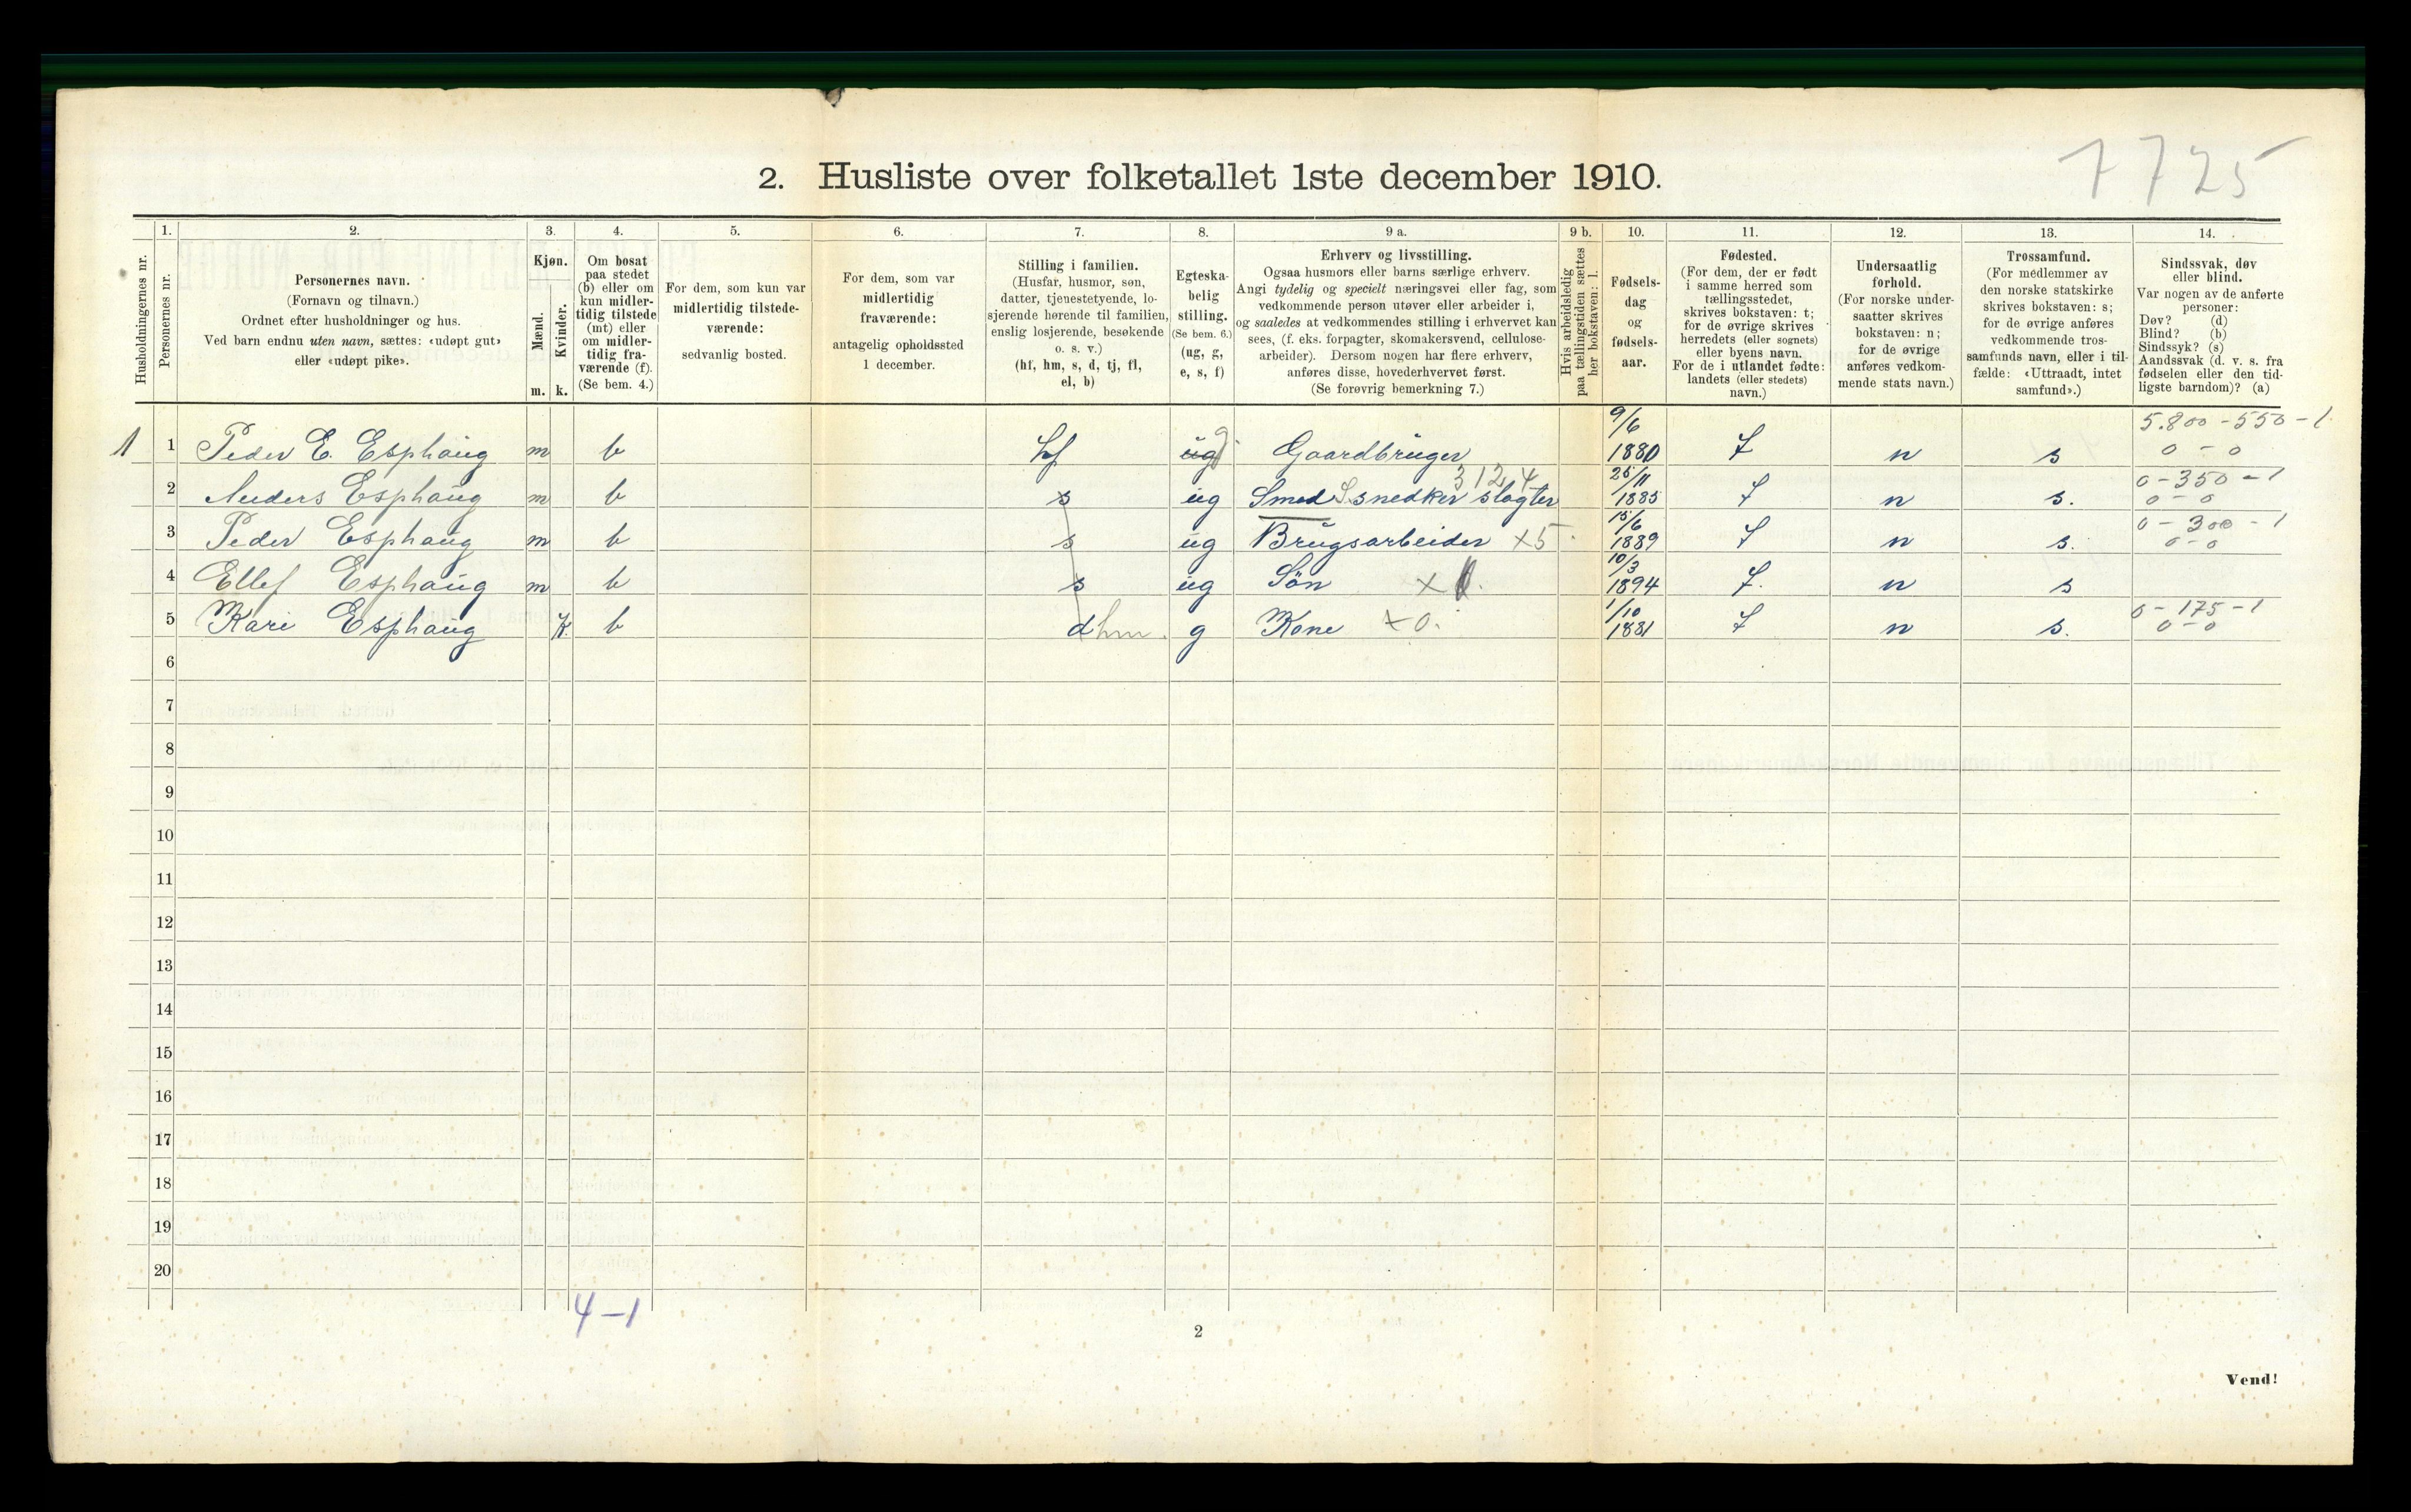 7725
2. Husliste over folketallet 1ste december 1910.
Husholdningernes nr.
1.
Personernes nr.
2.
Personernes navn.
(Fornavn og tilnavn.)
Ordnet efter husholdninger og hus.
Ved barn endnu uten navn, sættes: «udøpt gut»
eller «udøpt pike».
3.
Kjøn.
Mænd.
Kvinder.
m. k.
4.
Om bosat
paa stedet
(b) eller om
kun midler-
tidig tilstede
(mt) eller
om midler-
tidig fra-
værende (f).
(Se bem. 4.)
5.
For dem, som kun var
midlertidig tilstede-
værende:
sedvanlig bosted.
6.
For dem, som var
midlertidig
fraværende:
antagelig opholdssted
1 december.
7.
Stilling i familien.
(Husfar, husmor, søn,
datter, tjenestetyende, lo-
sjerende hørende til familien,
enslig losjerende, besøkende
o. s. v.)
(hf, hm, s, d, tj, fl,
el, b)
8.
Egteska-
belig
stilling.
(Se bem. 6.)
(ug, g,
e, s, f)
9 a.
Erhverv og livsstilling.
Ogsaa husmors eller barns særlige erhverv.
Angi tydelig og specielt næringsvei eller fag, som
vedkommende person utøver eller arbeider i,
og saaledes at vedkommendes stilling i erhvervet kan
sees, (f. eks. forpagter, skomakersvend, cellulose-
arbeider). Dersom nogen har flere erhverv,
anføres disse, hovederhvervet først.
(Se forøvrig bemerkning 7.)
9 b.
Hvis arbeidsledig
paa tællingstiden sættes
her bokstaven: l.
10.
Fødsels-
dag
og
fødsels-
aar.
11.
Fødested.
(For dem, der er født
i samme herred som
tællingsstedet,
skrives bokstaven: t;
for de øvrige skrives
herredets (eller sognets)
eller byens navn.
For de i utlandet fødte:
landets (eller stedets)
navn.)
12.
Undersaatlig
forhold.
(For norske under-
saatter skrives
bokstaven: n;
for de øvrige
anføres vedkom-
mende stats navn.)
13.
Trossamfund.
(For medlemmer av
den norske statskirke
skrives bokstaven: s;
for de øvrige anføres
vedkommende tros-
samfunds navn, eller i til-
fælde: «Uttraadt, intet
samfund».)
14.
Sindssvak, døv
eller blind.
Var nogen av de anførte
personer:
Døv? (d)
Blind? (b)
Sindssyk? (s)
Aandssvak (d. v. s. fra
fødselen eller den tid-
ligste barndom)? (a)
1 1 Peder E. Esphaug m b hf ug g. Gaardbruger 9/6 1880 t n s 5.800-550-1 0-0
2 Anders Esphaug m b s ug Smed S. snedker slagter 312,4 25/11 1885 t n s. 0-350-1 0-0
3 Peder Esphaug m b s ug Brugsarbeider x5. 15/6 1889 t n s. 0-300-1 0-0
4 Ellef Esphaug m b s ug Søn 10/3 1894 t. n s
5 Kari Esphaug k. b d hm. g Kone x0. 1/10 1881 t n s. 0-175-1 0-0
6
7
8
9
10
11
12
13
14
15
16
17
18
19
20
4-1
2
Vend!